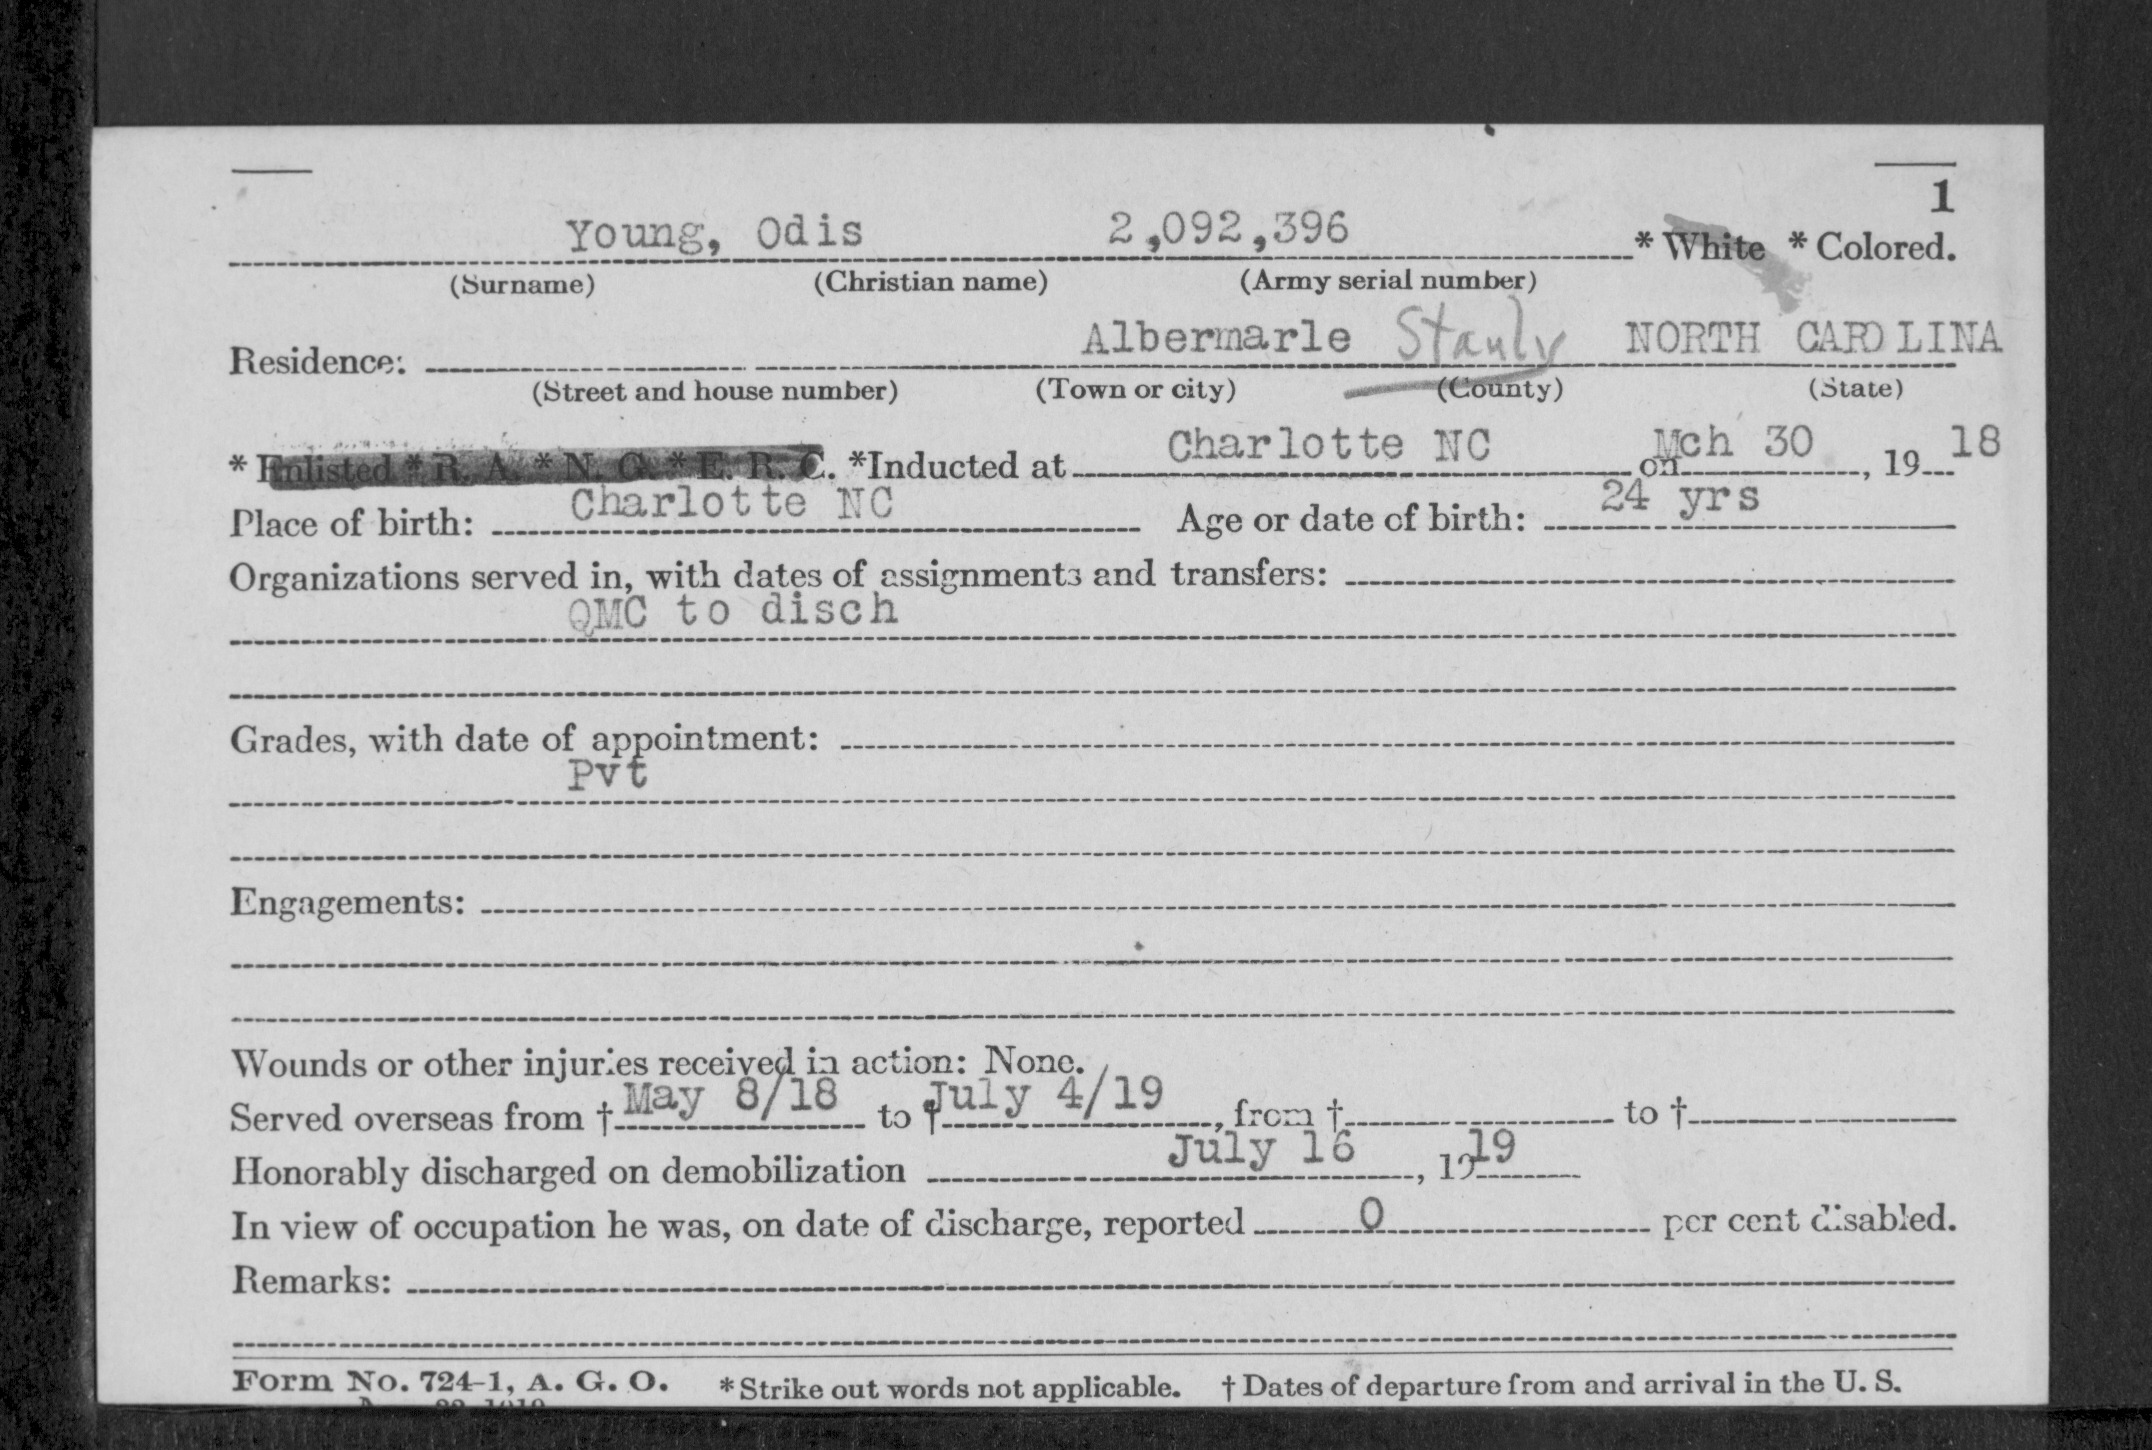 1
Young, Odis 2,092,396 * White * Colored.
(Surname) (Christian name) (Army serial number)
Residence: Albermarle Stanly NORTH CAROLINA
(Street and house number) (Town or city) (County) (State)
* Enlisted * R. A. * N. G. * E. R. C. *Inducted at Charlotte NC on Mch 30, 1918
Place of birth: Charlotte NC Age or date of birth: 24 yrs
Organizations served in, with dates of assignments and transfers:
QMC to disch
Grades, with date of appointment:
Pvt
Engagements:
Wounds or other injuries received in action: None.
Served overseas from † May 8/18 to † July 4/19, from † to †
Honorably discharged on demobilization July 16, 1919
In view of occupation he was, on date of discharge, reported 0 per cent disabled.
Remarks:
Form No. 724-1, A. G. O. * Strike out words not applicable. † Dates of departure from and arrival in the U. S.